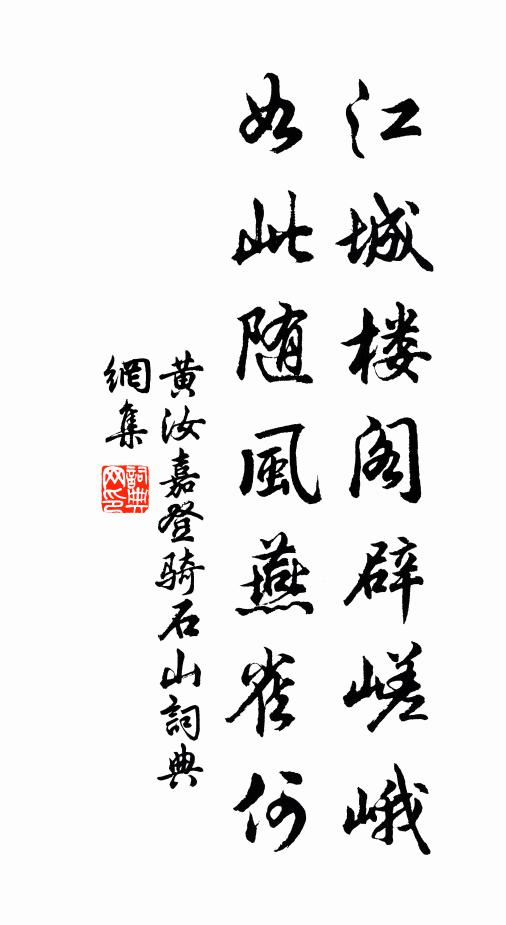 江城楼阁辟嵯峨
如此随風燕雀何
黄汝嘉登骑石山詞典
網集
詞典
网印